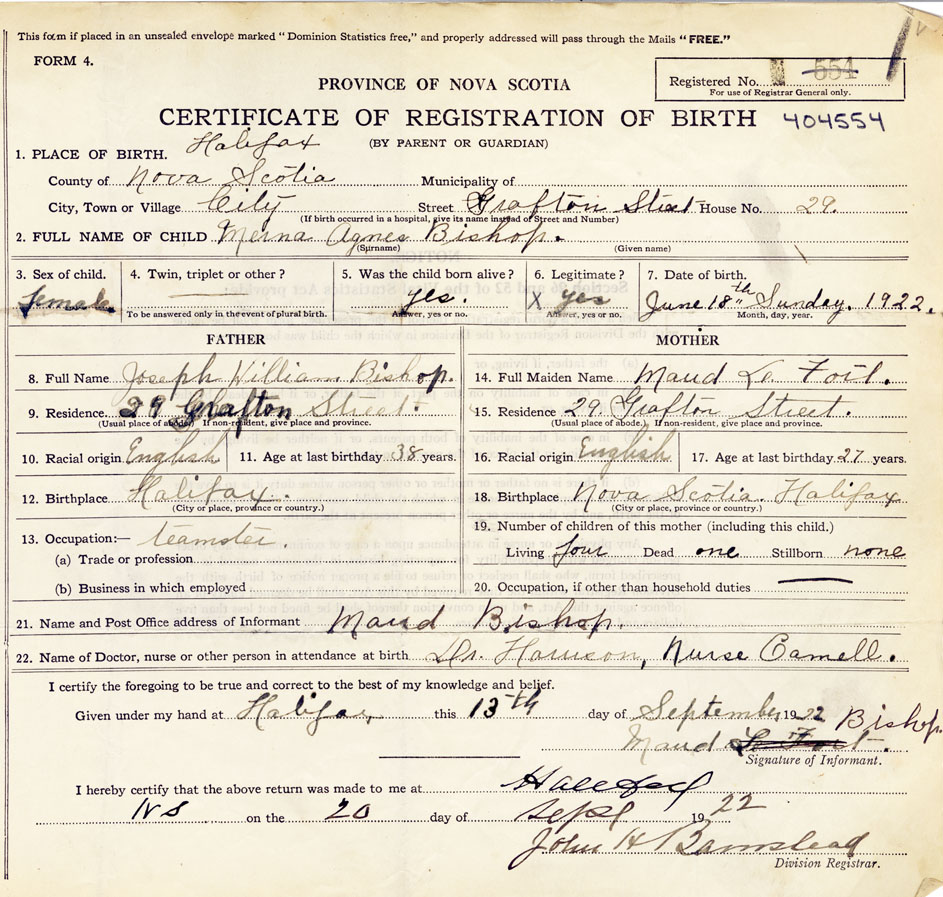 This form if placed in an unsealed envelope marked "Dominion Statistics free," and properly addressed will pass through the Mails "FREE."
FORM 4.
Registered No. 554
For use of Registrar General only.
PROVINCE OF NOVA SCOTIA
CERTIFICATE OF REGISTRATION OF BIRTH 404554
(BY PARENT OR GUARDIAN)
1. PLACE OF BIRTH. Halifax
County of Nova Scotia Municipality of
City, Town or Village City Street Grafton Street House No. 29.
(If birth occurred in a hospital, give its name instead of Street and Number)
2. FULL NAME OF CHILD Merna Agnes Bishop.
(Surname) (Given name)
3. Sex of child. 4. Twin, triplet or other? 5. Was the child born alive? 6. Legitimate? 7. Date of birth.
female yes. X yes June 18th Sunday. 1922.
To be answered only in the event of plural birth. Answer, yes or no. Answer, yes or no. Month, day, year.
FATHER MOTHER
8. Full Name Joseph William Bishop. 14. Full Maiden Name Maud Le Foil.
9. Residence. 29 Grafton Street. 15. Residence 29 Grafton Street.
(Usual place of abode.) If non-resident, give place and province. (Usual place of abode.) If non-resident, give place and province.
10. Racial origin English 11. Age at last birthday 38 years. 16. Racial origin English 17. Age at last birthday 27 years.
12. Birthplace Halifax. 18. Birthplace Nova Scotia. Halifax
(City or place, province or country.) (City or place, province or country.)
13. Occupation:— teamster. 19. Number of children of this mother (including this child.)
(a) Trade or profession Living four Dead one Stillborn none
(b) Business in which employed 20. Occupation, if other than household duties
21. Name and Post Office address of Informant Maud Bishop.
22. Name of Doctor, nurse or other person in attendance at birth Dr. Harrison, Nurse Camell.
I certify the foregoing to be true and correct to the best of my knowledge and belief.
Given under my hand at Halifax this 13th day of September 1922
Maud Bishop
Signature of Informant.
I hereby certify that the above return was made to me at Halifax
NS on the 20 day of Sept 1922
John H Barnstead
Division Registrar.